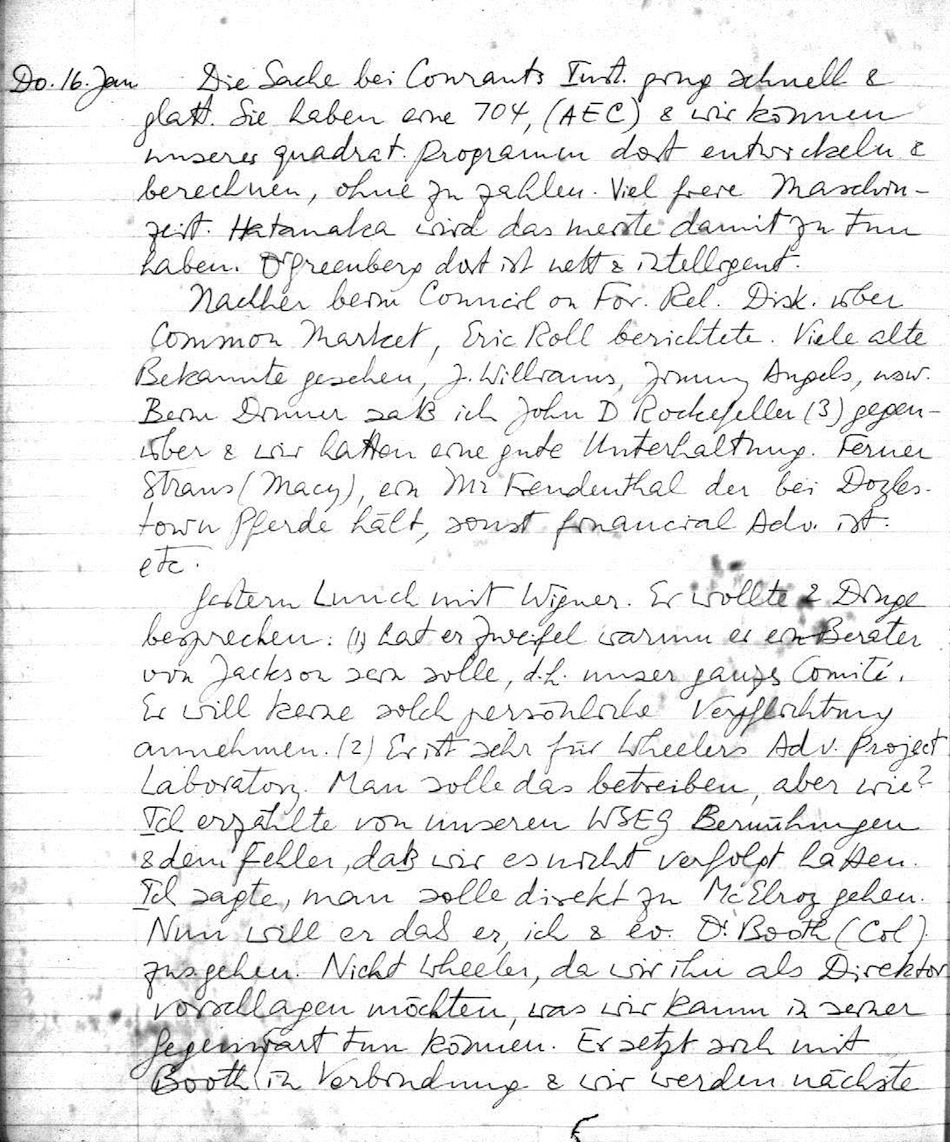 Do. 16. Jan. Die Sache bei Courants Inst. ging schnell &
glatt. Sie haben eine 704, (AEC) & wir können
unserer quadrat. Programm dort entwickeln &
berechnen, ohne zu zahlen. Viel freie Maschin-
zeit. Hatanaka wird das meiste damit zu tun
haben. Dr Greenberg dort ist nett & intelligent.
Nachher beim Council on For. Rel. Disk. über
Common Market, Eric Roll berichtete. Viele alte
Bekannte gesehen, J. Williams, Jimmy Angels, usw.
Beim Dinner saß ich John D Rockefeller (3) gegen-
über & wir hatten eine gute Unterhaltung. Ferner
Straus (Macy), ein Mr Freudenthal der bei Doyles-
town Pferde hält, sonst financial Adv. ist.
etc.
Gestern Lunch mit Wigner. Er wollte 2 Dinge
besprechen: (1) hat er Zweifel warum er ein Berater
von Jackson sein solle, d.h. unser ganzes Comité.
Er will keine solch persönliche Verpflichtung
annehmen. (2) Er ist sehr für Wheelers Adv. Project
Laboratory. Man solle das betreiben, aber wie?
Ich erzählte von unseren WSEG Bemühungen
& dem Fehler, daß wir es nicht verfolgt hatten.
Ich sagte, man solle direkt zu McElroy gehen.
Nun will er daß er, ich & ev. Dr Booth (Col).
zusgehen. Nicht Wheeler, da wir ihn als Direktor
vorschlagen möchten, was wir kaum in seiner
Gegenwart tun können. Er setzt sich mit
Booth in Verbindung & wir werden nächste